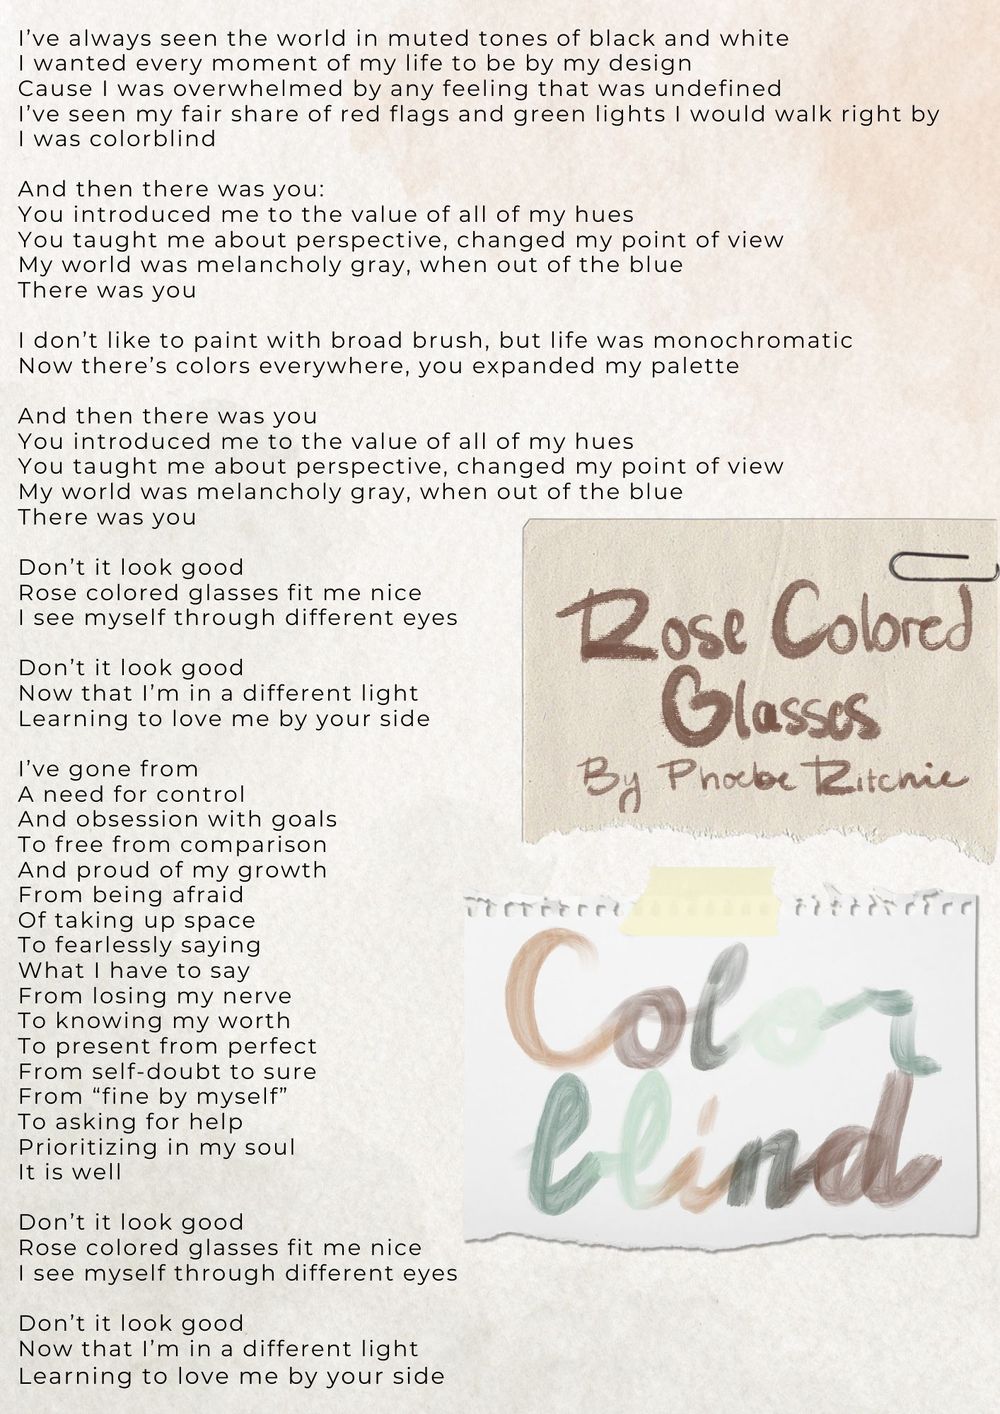 I’ve always seen the world in muted tones of black and white
I wanted every moment of my life to be by my design
Cause I was overwhelmed by any feeling that was undefined
I’ve seen my fair share of red flags and green lights I would walk right by
I was colorblind
And then there was you:
You introduced me to the value of all of my hues
You taught me about perspective, changed my point of view
My world was melancholy gray, when out of the blue
There was you
I don’t like to paint with broad brush, but life was monochromatic
Now there’s colors everywhere, you expanded my palette
And then there was you
You introduced me to the value of all of my hues
You taught me about perspective, changed my point of view
My world was melancholy gray, when out of the blue
There was you
Don’t it look good
Rose colored glasses fit me nice
I see myself through different eyes
Don’t it look good
Now that I’m in a different light
Learning to love me by your side
I’ve gone from
A need for control
And obsession with goals
To free from comparison
And proud of my growth
From being afraid
Of taking up space
To fearlessly saying
What I have to say
From losing my nerve
To knowing my worth
To present from perfect
From self-doubt to sure
From “fine by myself”
To asking for help
Prioritizing in my soul
It is well
Don’t it look good
Rose colored glasses fit me nice
I see myself through different eyes
Don’t it look good
Now that I’m in a different light
Learning to love me by your side
Rose Colored
Glasses
By Phoebe Ritchie
Color
blind